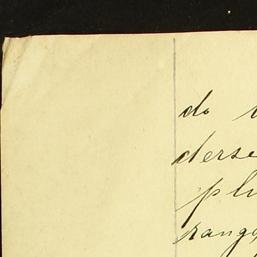 do
derse
plu
rango